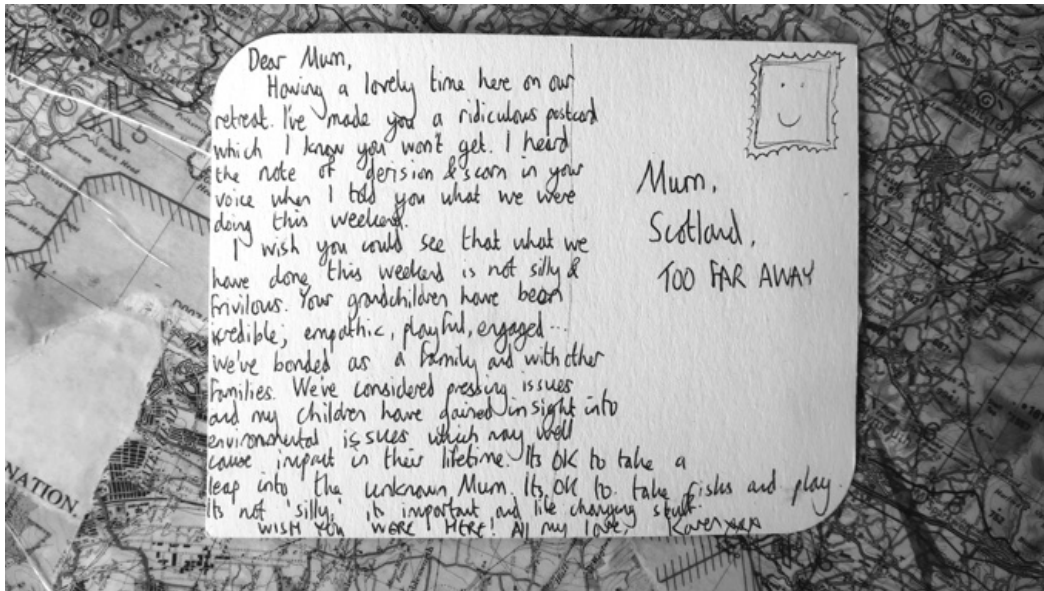 Dear Mum,
Having a lovely time here on our
retreat. I've made you a ridiculous postcard
which I know you won't get. I heard
the note of derision & scorn in your
voice when I told you what we were
doing this weekend.
I wish you could see that what we
have done this weekend is not silly &
frivilous. Your grandchildren have been
icredible; empathic, playful, engaged ...
We've bonded as a family and with other
families. We've considered pressing issues
and my children have gained insight into
environmental issues which may well
cause impact in their lifetime. Its OK to take a
leap into the unknown, Mum. Its OK to take risks and play.
Its not 'silly', its important and life changing stuff.
WISH YOU WERE HERE! All my love, Karen xxx
Mum,
Scotland,
TOO FAR AWAY
NATION